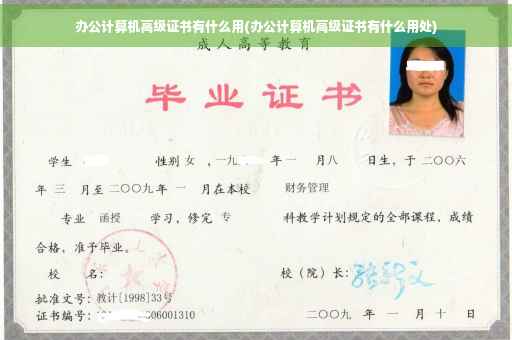 办公计算机高级证书有什么用(办公计算机高级证书有什么用处)
成人高等教育
毕业证书
学生 性别 女 ，一九 年一 月八 日生，于二〇〇六
年 三 月至二〇〇九年 一 月在本校 财务管理
专业 函授 学习，修完 专 科教学计划规定的全部课程，成绩
合格，准予毕业。
校 名： 校（院）长：
批准文号：教计[1998]33号
证书编号： 006001310 二〇〇九 年 一 月 十 日